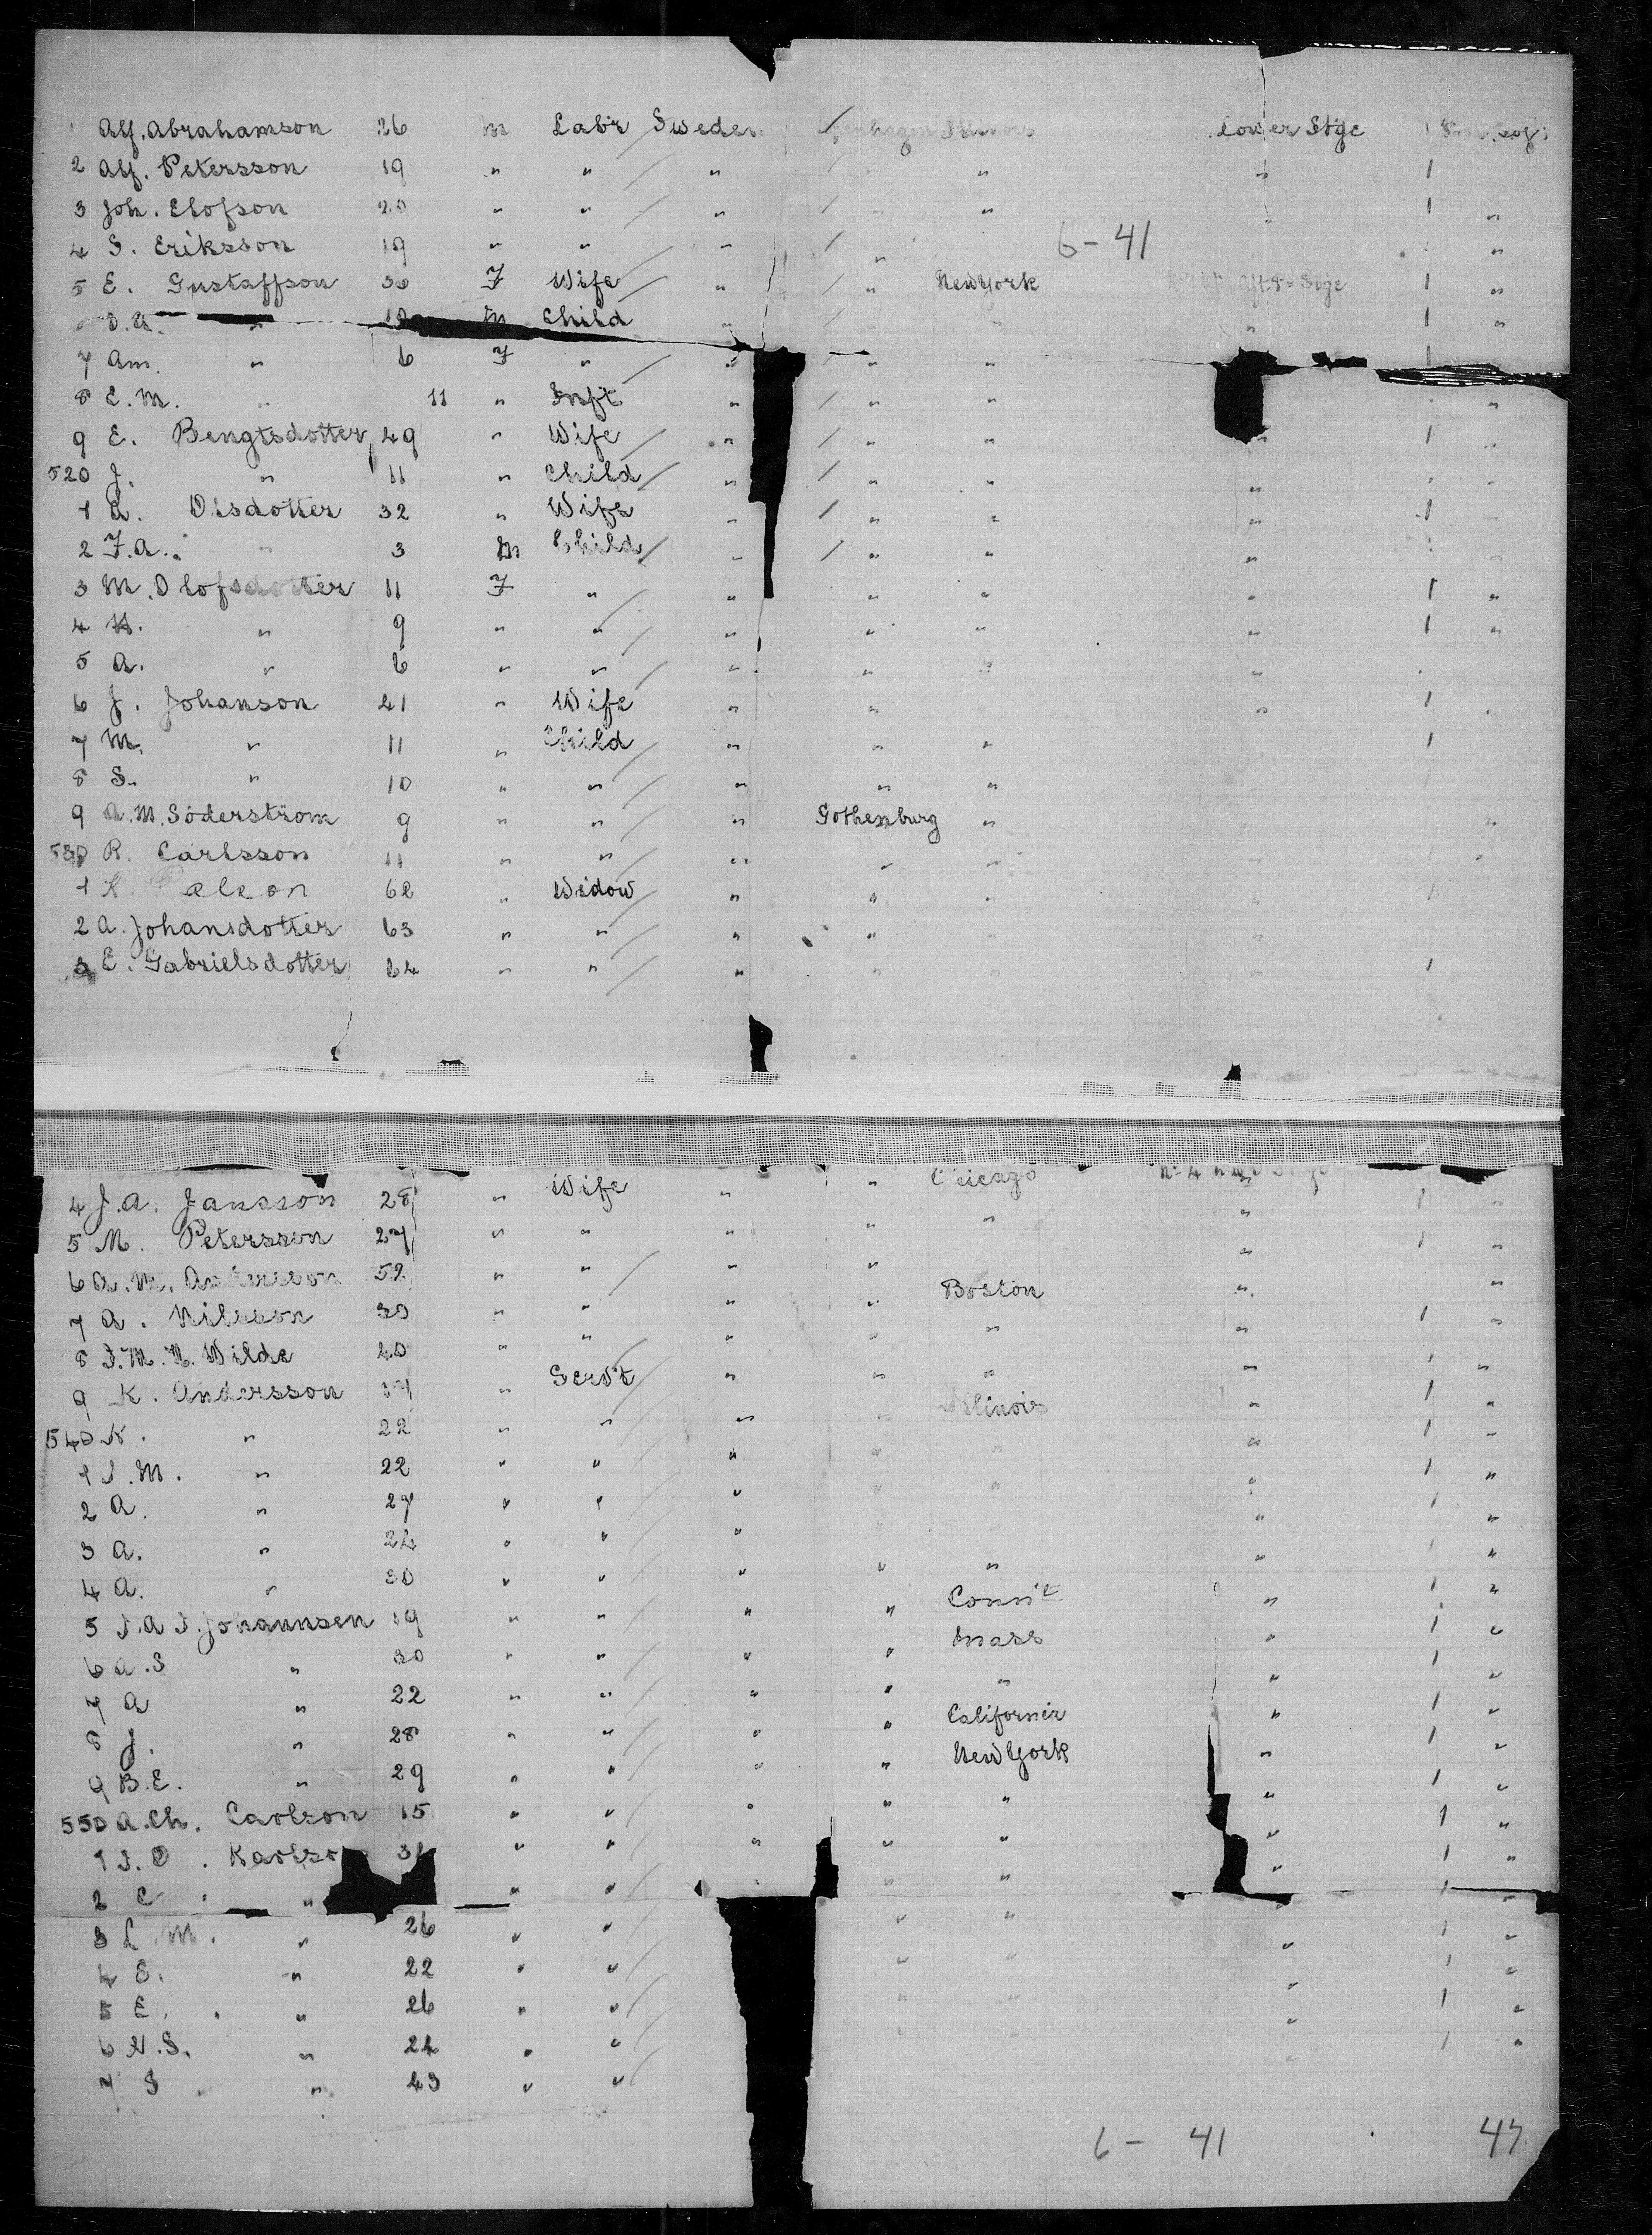 Alf. Abrahamson 26 m Lab'r Sweden / Illinois Lower Stge 1
2 Alf. Petersson 19 " " / " / " " 1
3 Joh. Elofson 20 " " / " / " " 1 "
4 S. Eriksson 19 " " / " / " "
6-41
5 E. Gustaffson 30 F Wife " / " New York Stge 1 "
" m Child " " " " 1 "
7 Am. " 6 F " / " / " " 1
8 E. M. 11 " Inft " / " " "
9 E. Bengtsdotter 49 " Wife / " / " " " 1 "
520 J. " 11 " Child / " / " " "
1 Olsdotter 32 " Wife " / " " " 1
2 F. A. " 3 m Child / " / " " "
3 M. Olofsdotter 11 F " " " " " 1 "
4 K. " 9 " " / " " " " 1 "
5 A. " 6 " " / " " " "
6 J. Johanson 41 " Wife " " " 1
7 M. " 11 " Child / " " " 1
8 S. " 10 " " / " " "
9 A. M. Söderström 9 " " " Gothenburg " "
530 R. Carlsson 11 " " / " " "
1 K. 62 " Widow / " " "
2 A. Johansdotter 63 " " / " " "
3 E. Gabrielsdotter 64 " " / " " " 1
4 J. A. Jansson 28 " Wife " " Chicago 1 "
5 M. Petersson 27 " " " " " " 1 "
6 A. M. Andersson 52 " " / " " " "
7 A. Nilsson 30 " " " " Boston " 1 "
8 J. M. N. Wilde 40 " " / " " " "
9 K. Andersson " Serv't / " " " " 1 "
540 K. " 22 " " / " " Illinois " 1 "
1 J. M. " 22 " " / " " " " 1 "
2 A. " 27 " " / " " " " 1 "
3 A. " 24 " " / " " "
4 A. " 30 " " / " " " " "
5 J. A. J. Johannsen 19 " " / " " Conn't " 1 "
6 A. S " 30 " " / " " Mass " 1 "
7 A " 22 " " / " " " " 1 "
8 J. " 28 " " / " " California " 1 "
9 B. E. " 29 " " / " " New York " 1 "
550 A. Ch. Carlson 15 " " / " " " " 1 "
1 J. O. Karlso " " / " " " " 1 "
2 C. " " " / " " " " 1 "
3 L. M. " 26 " " / " " " 1 "
4 S. " 22 " " / " " " 1 "
5 E. " 26 " " / " " " 1 "
6 N. S. " 24 " " / " " " 1 "
7 S " 43 " " /
6 - 41 47